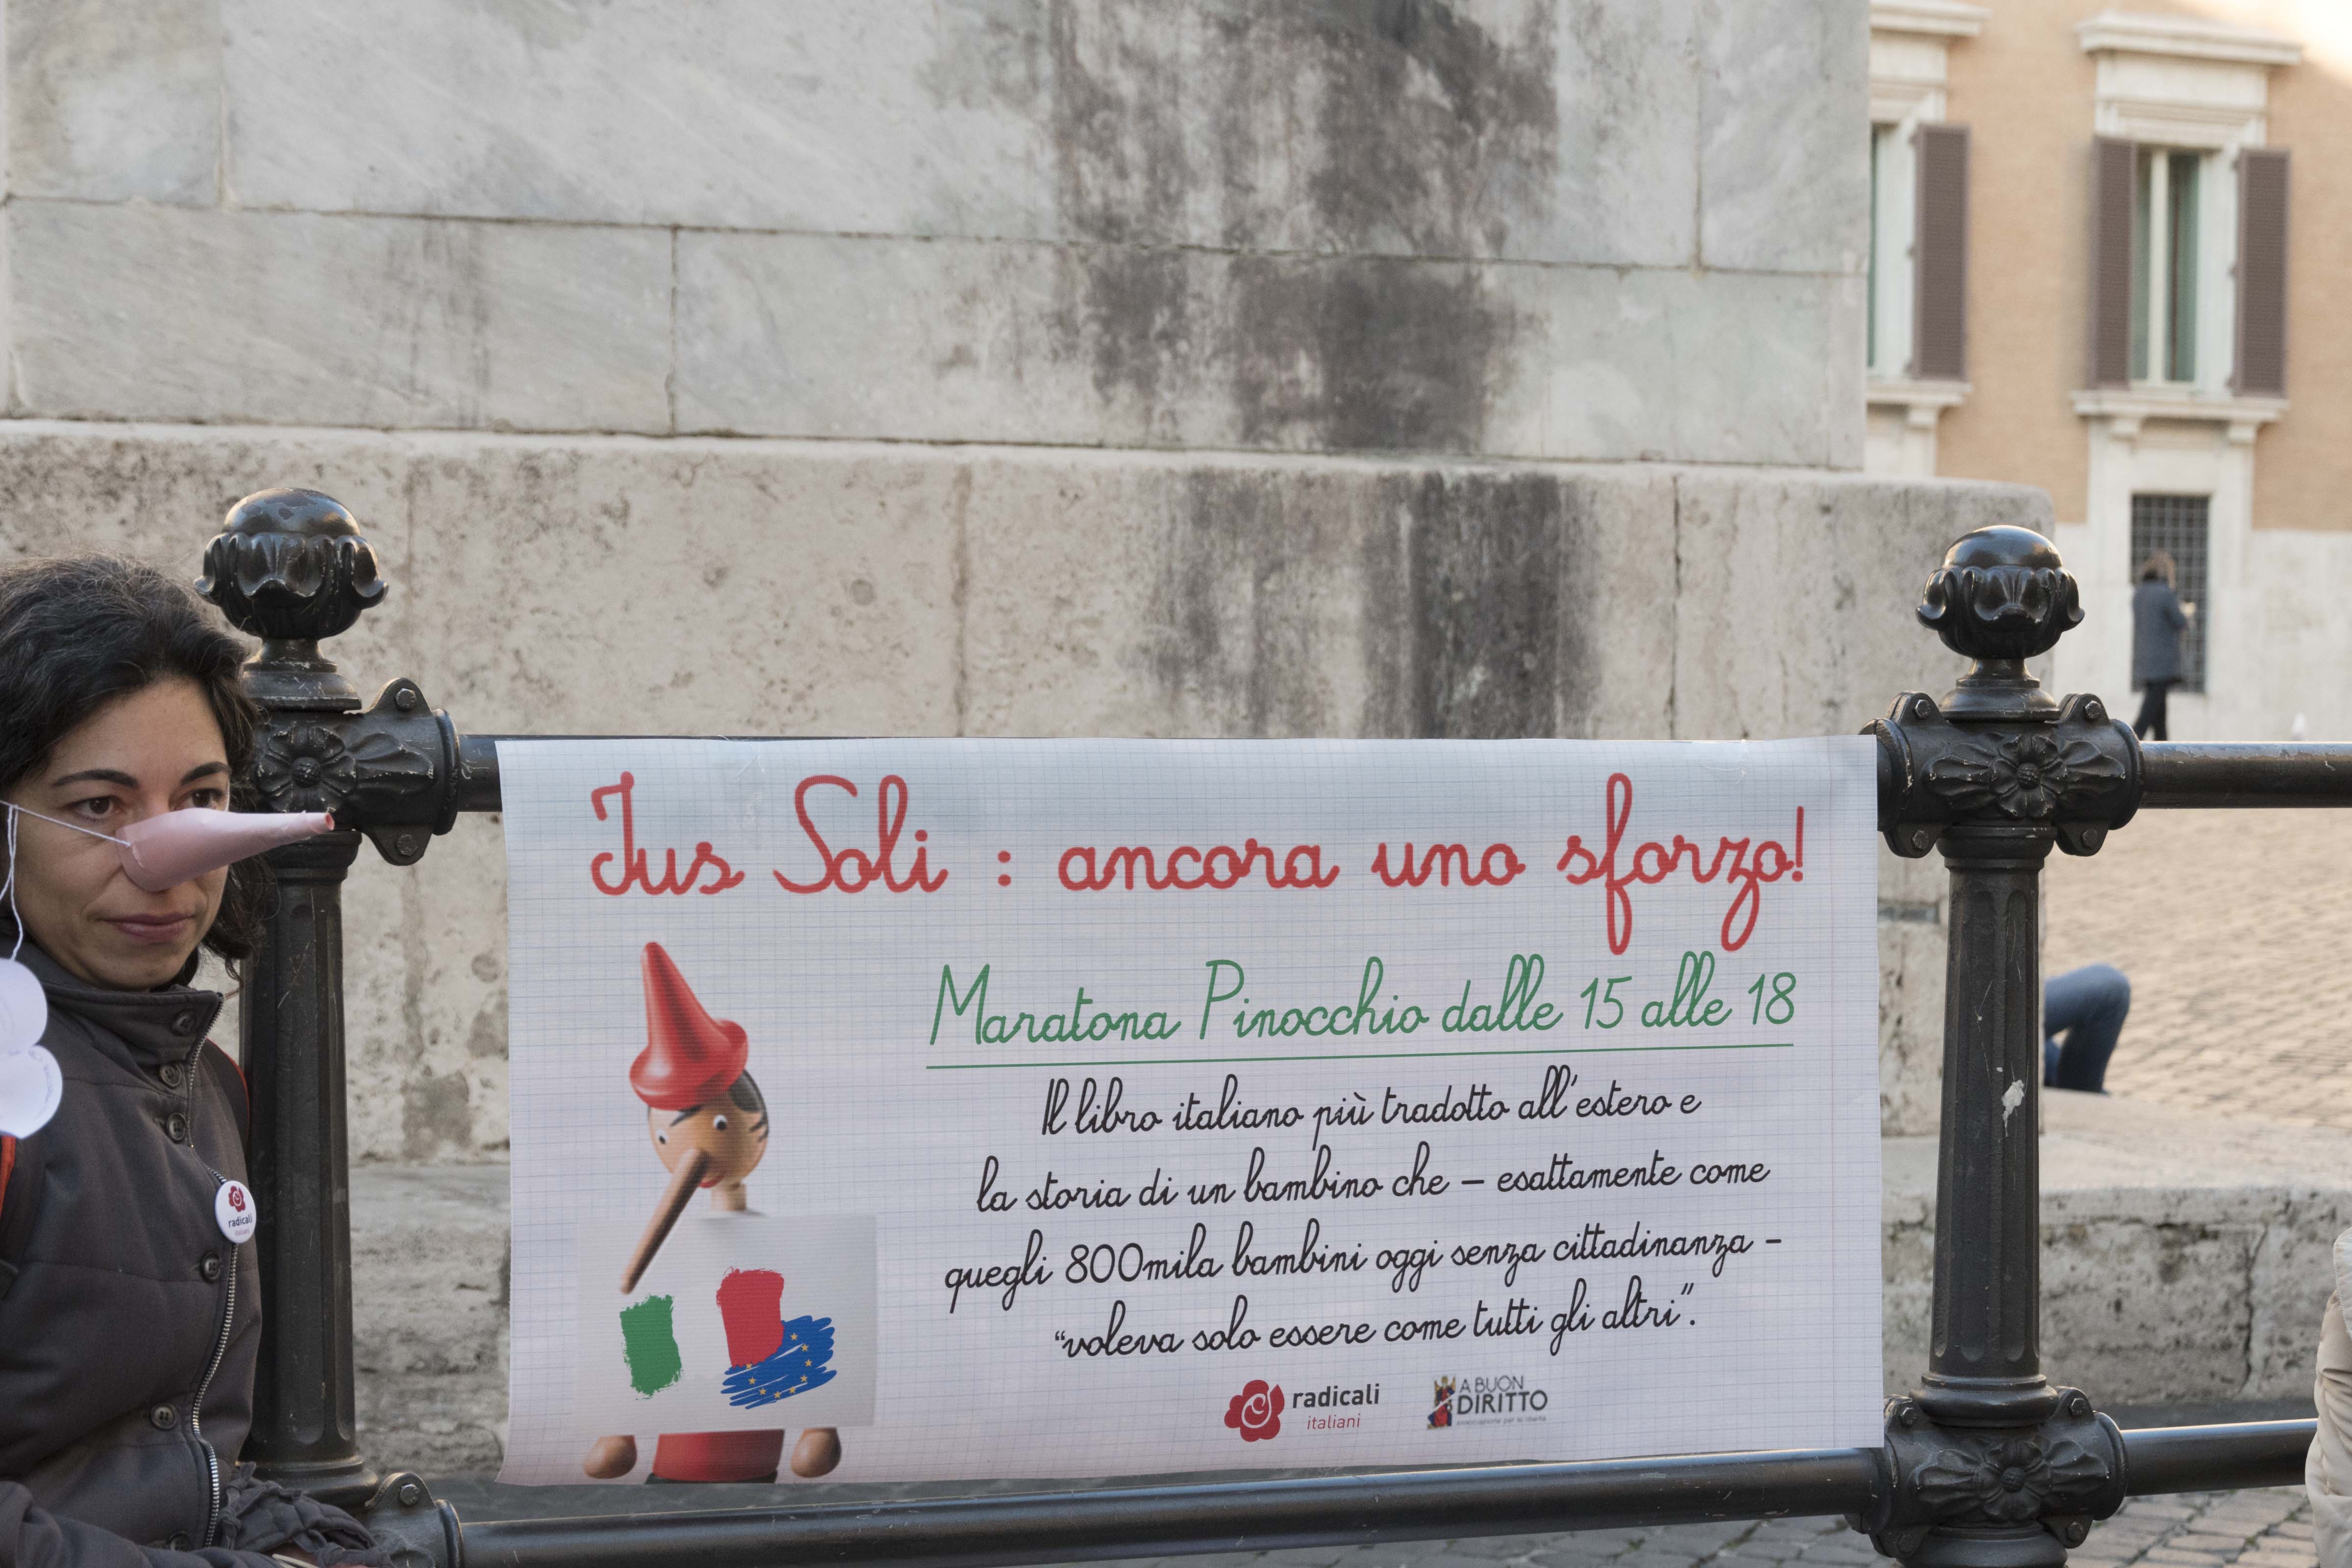 Jus Soli : ancora uno sforzo!
Maratona Pinocchio dalle 15 alle 18
Il libro italiano più tradotto all'estero e
la storia di un bambino che – esattamente come
quegli 800mila bambini oggi senza cittadinanza –
“voleva solo essere come tutti gli altri”.
radicali
italiani
A BUON
DIRITTO
associazione per le libertà
radicali
italiani